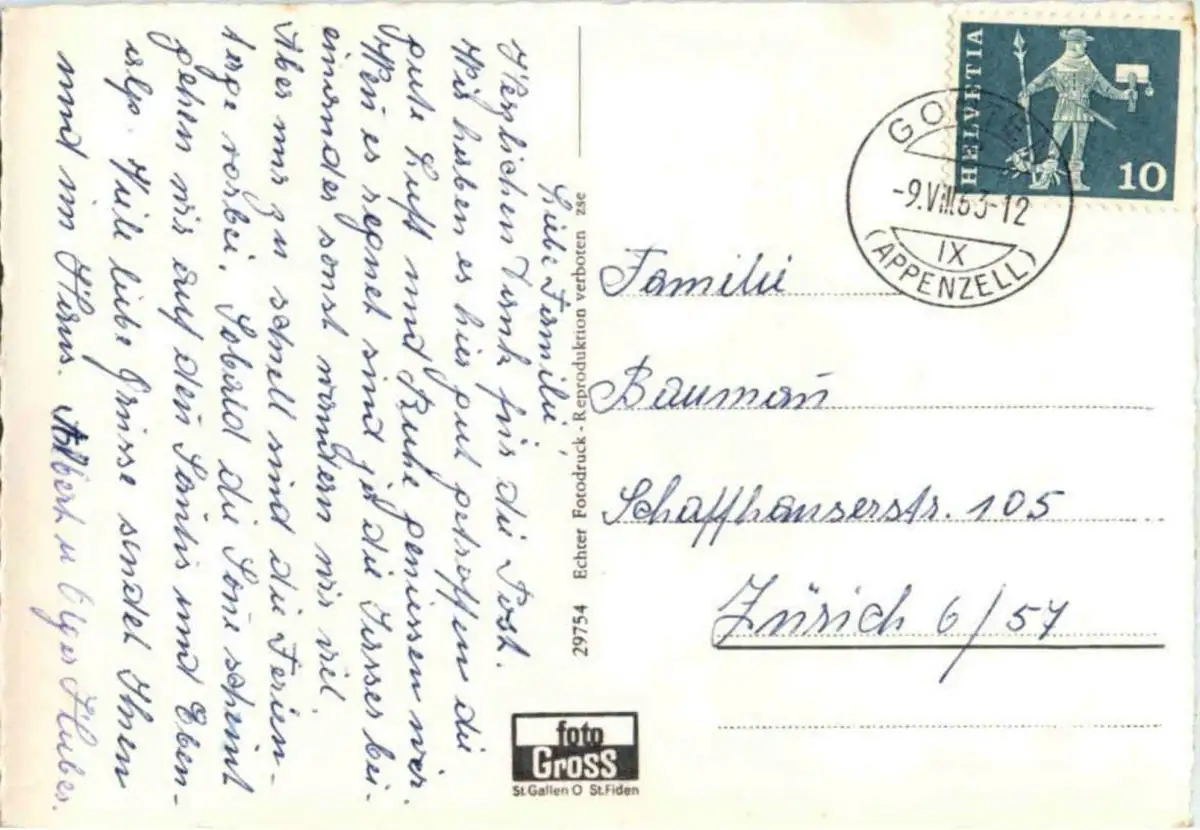 Liebe Familie,
Herzlichen Dank für die Post.
Wir haben es hier gut getroffen die
gute Luft und Ruhe geniessen wir.
Wen es regnet sind ja die Jasser bei-
einander sonst wandern wir viel.
Aber nur zu schnell sind die Ferien-
tage vorbei. Sobald die Sone scheint
gehen wir auf den Säntis und Eben-
alp. Viele liebe Grüsse sendet Ihnen
und im Haus. Albert u Huber.
29754 Echter Fotodruck - Reproduktion verboten zse
foto
Gross
St. Gallen O St. Fiden
HELVETIA
10
-9.VIII.63-12
IX
(APPENZELL)
Familie
Baumañ
Schaffhauserstr. 105
Zürich 6/57